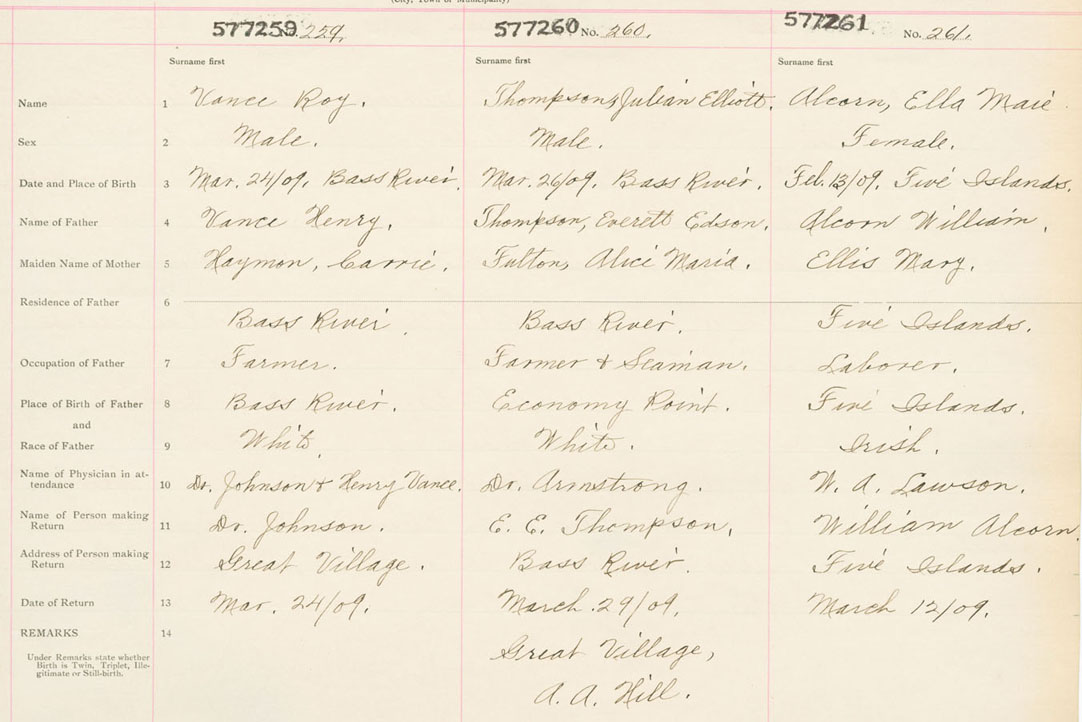 (City, Town or Municipality)
577259 No. 229. 577260 No. 260. 577261 No. 261.
Surname first Surname first Surname first
Name 1 Vance Roy. Thompson, Julian Elliott. Alcorn, Ella Marie
Sex 2 Male. Male. Female.
Date and Place of Birth 3 Mar. 24/09. Bass River. Mar. 26/09. Bass River. Feb. 13/09. Five Islands.
Name of Father 4 Vance Henry. Thompson, Everett Edson. Alcorn William.
Maiden Name of Mother 5 Haymon, Carrie. Fulton, Alice Maria. Ellis Mary.
Residence of Father 6
Bass River. Bass River. Five Islands.
Occupation of Father 7 Farmer. Farmer & Seaman. Laborer.
Place of Birth of Father 8 Bass River. Economy Point. Five Islands.
and
Race of Father 9 White. White. Irish.
Name of Physician in at-
tendance 10 Dr. Johnson & Henry Vance. Dr. Armstrong. W. A. Lawson.
Name of Person making
Return 11 Dr. Johnson. E. E. Thompson. William Alcorn.
Address of Person making
Return 12 Great Village. Bass River. Five Islands.
Date of Return 13 Mar. 24/09. March. 29/09. March 12/09.
REMARKS 14
Great Village,
Under Remarks state whether
Birth is Twin, Triplet, Ille-
gitimate or Still-birth.
A. A. Hill.